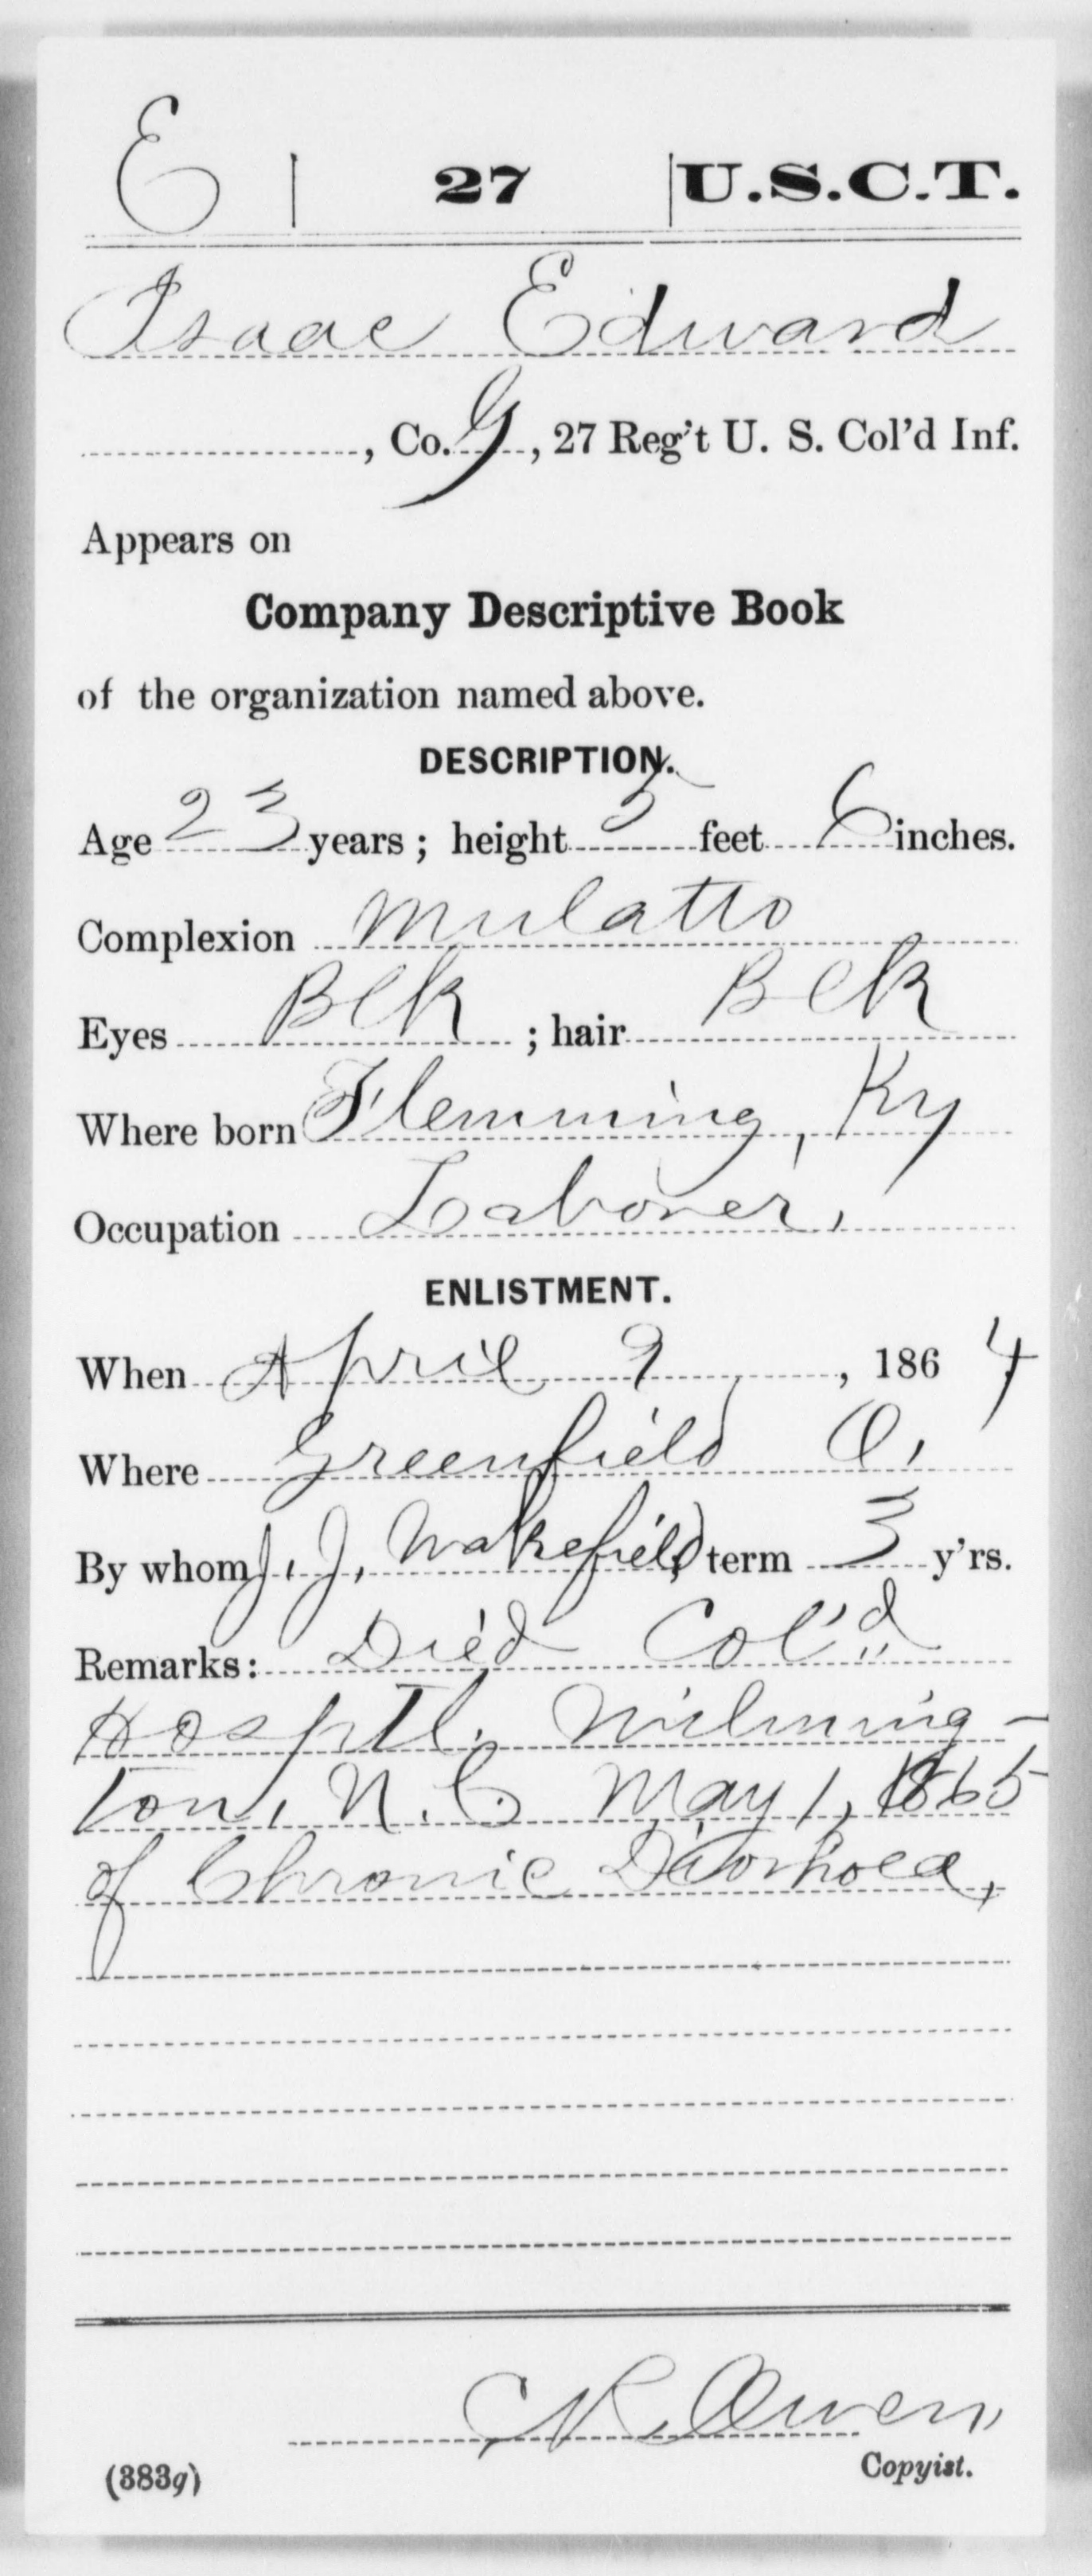 E | 27 | U.S.C.T.
Isaac Edward
, Co. G, 27 Reg't U. S. Col'd Inf.
Appears on
Company Descriptive Book
of the organization named above.
DESCRIPTION.
Age 23 years; height 5 feet 6 inches.
Complexion Mulatto
Eyes Blk ; hair Blk
Where born Flemming, Ky
Occupation Laborer,
ENLISTMENT.
When April 9, 1864
Where Greenfield O,
By whom J. J. Wakefield, term 3 y'rs.
Remarks: Died Col'd
Hosptl. Wilming-
ton, N.C. May 1, 1865
of Chronic Diorrhoea,
C R. Owen,
(383g) Copyist.